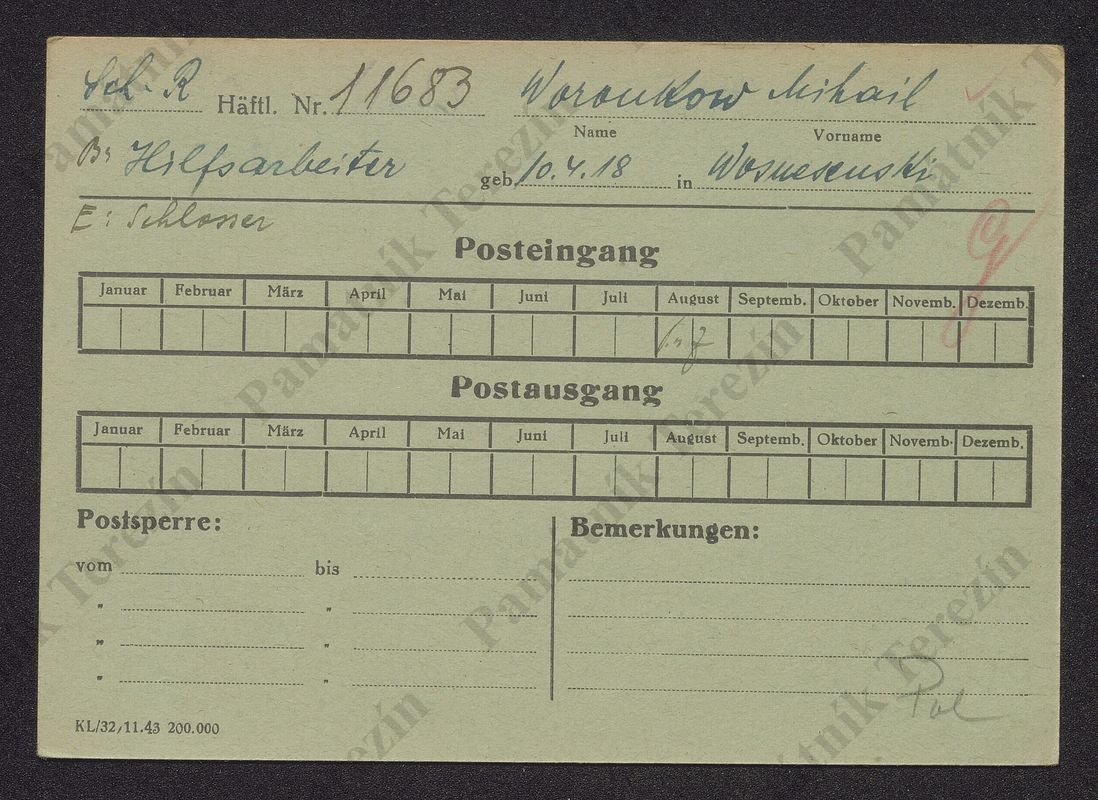 Sch. R Häftl. Nr. 11683 Woronkow Mihail
Name Vorname
B: Hilfsarbeiter geb. 10.4.18 in Wosnesenski
E: Schlosser
Posteingang
Januar Februar März April Mai Juni Juli August Septemb. Oktober Novemb. Dezemb.
Postausgang
Januar Februar März April Mai Juni Juli August Septemb. Oktober Novemb. Dezemb.
Postsperre: Bemerkungen:
vom bis
" "
" "
" "
Pol
KL/32/11.43 200.000
Památník Terezín